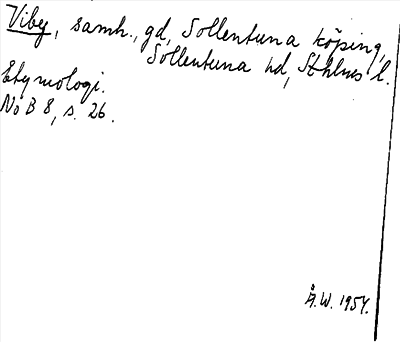 Viby, samh., gd, Sollentuna köping,
Sollentuna hd, Sthlms l.
Etymologi.
NoB 8, s. 26.
Å.W. 1954.